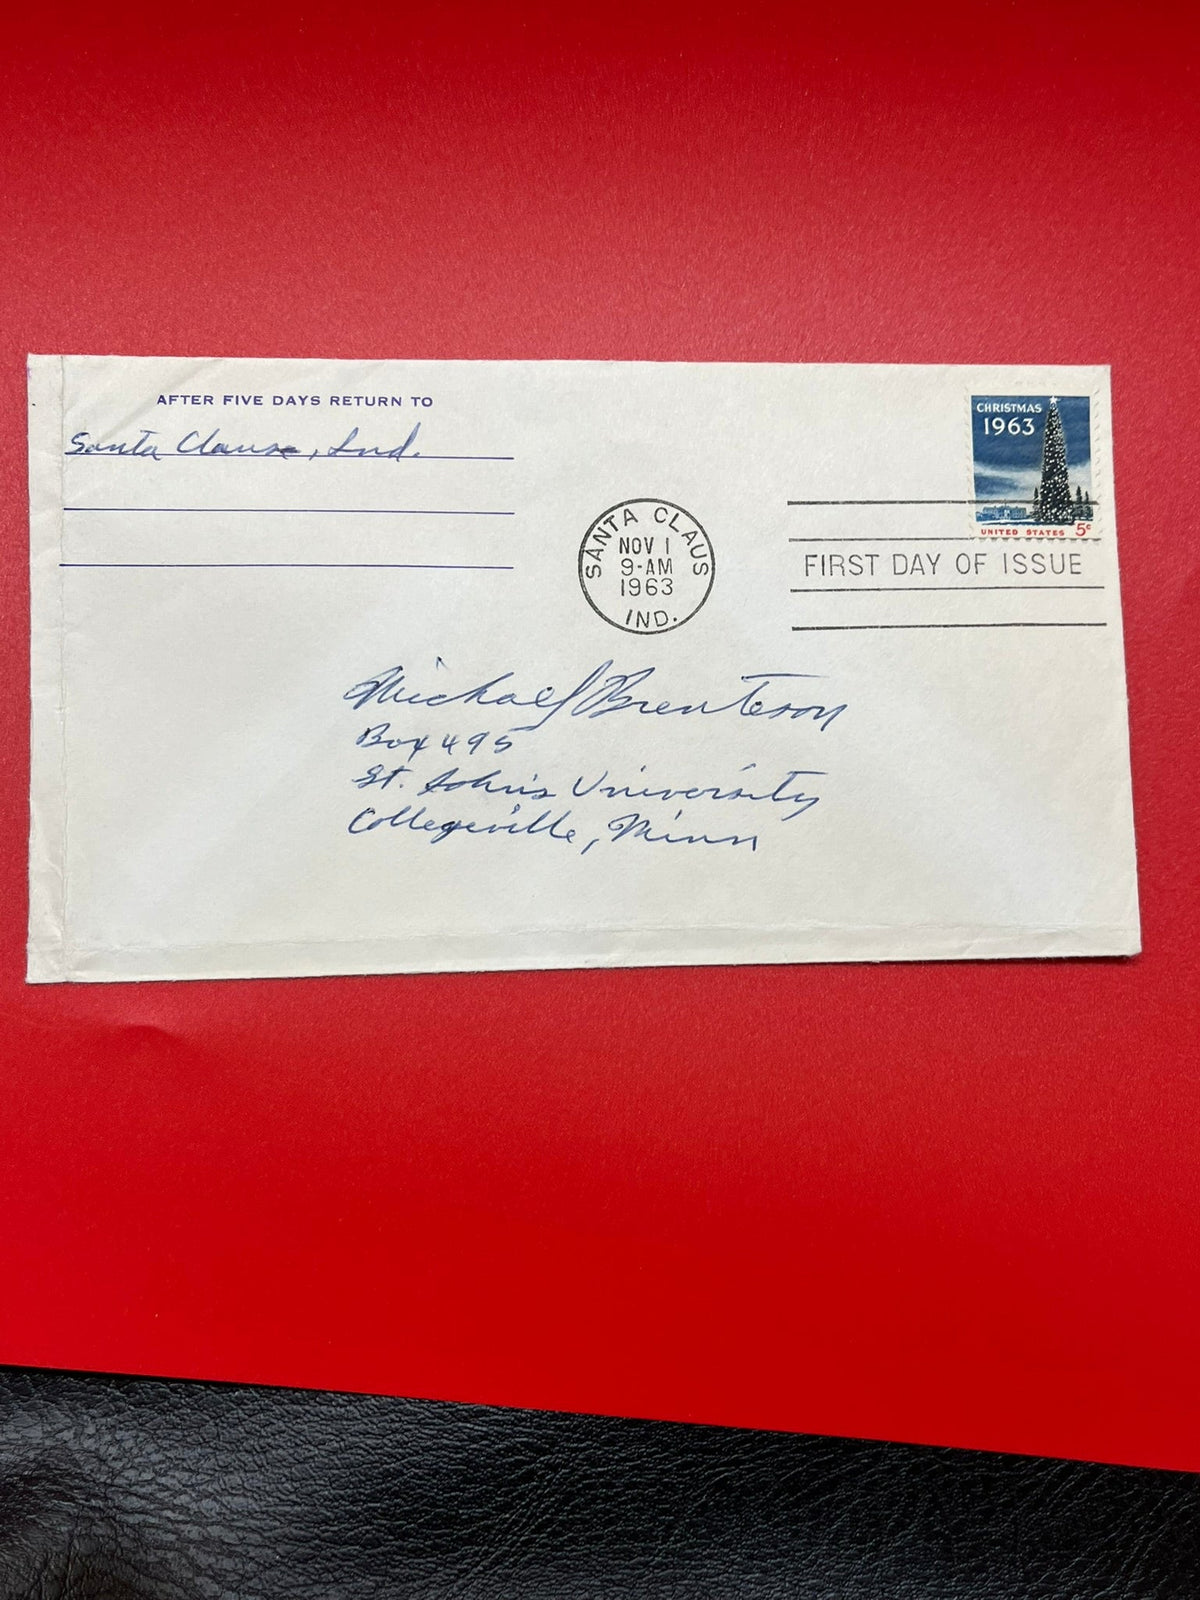 AFTER FIVE DAYS RETURN TO
Santa Clause, Ind.
CHRISTMAS
1963
UNITED STATES 5c
SANTA CLAUS
NOV 1
9-AM
1963
IND.
FIRST DAY OF ISSUE
Michael Brenteson
Box 495
St. John's University
Collegeville, Minn